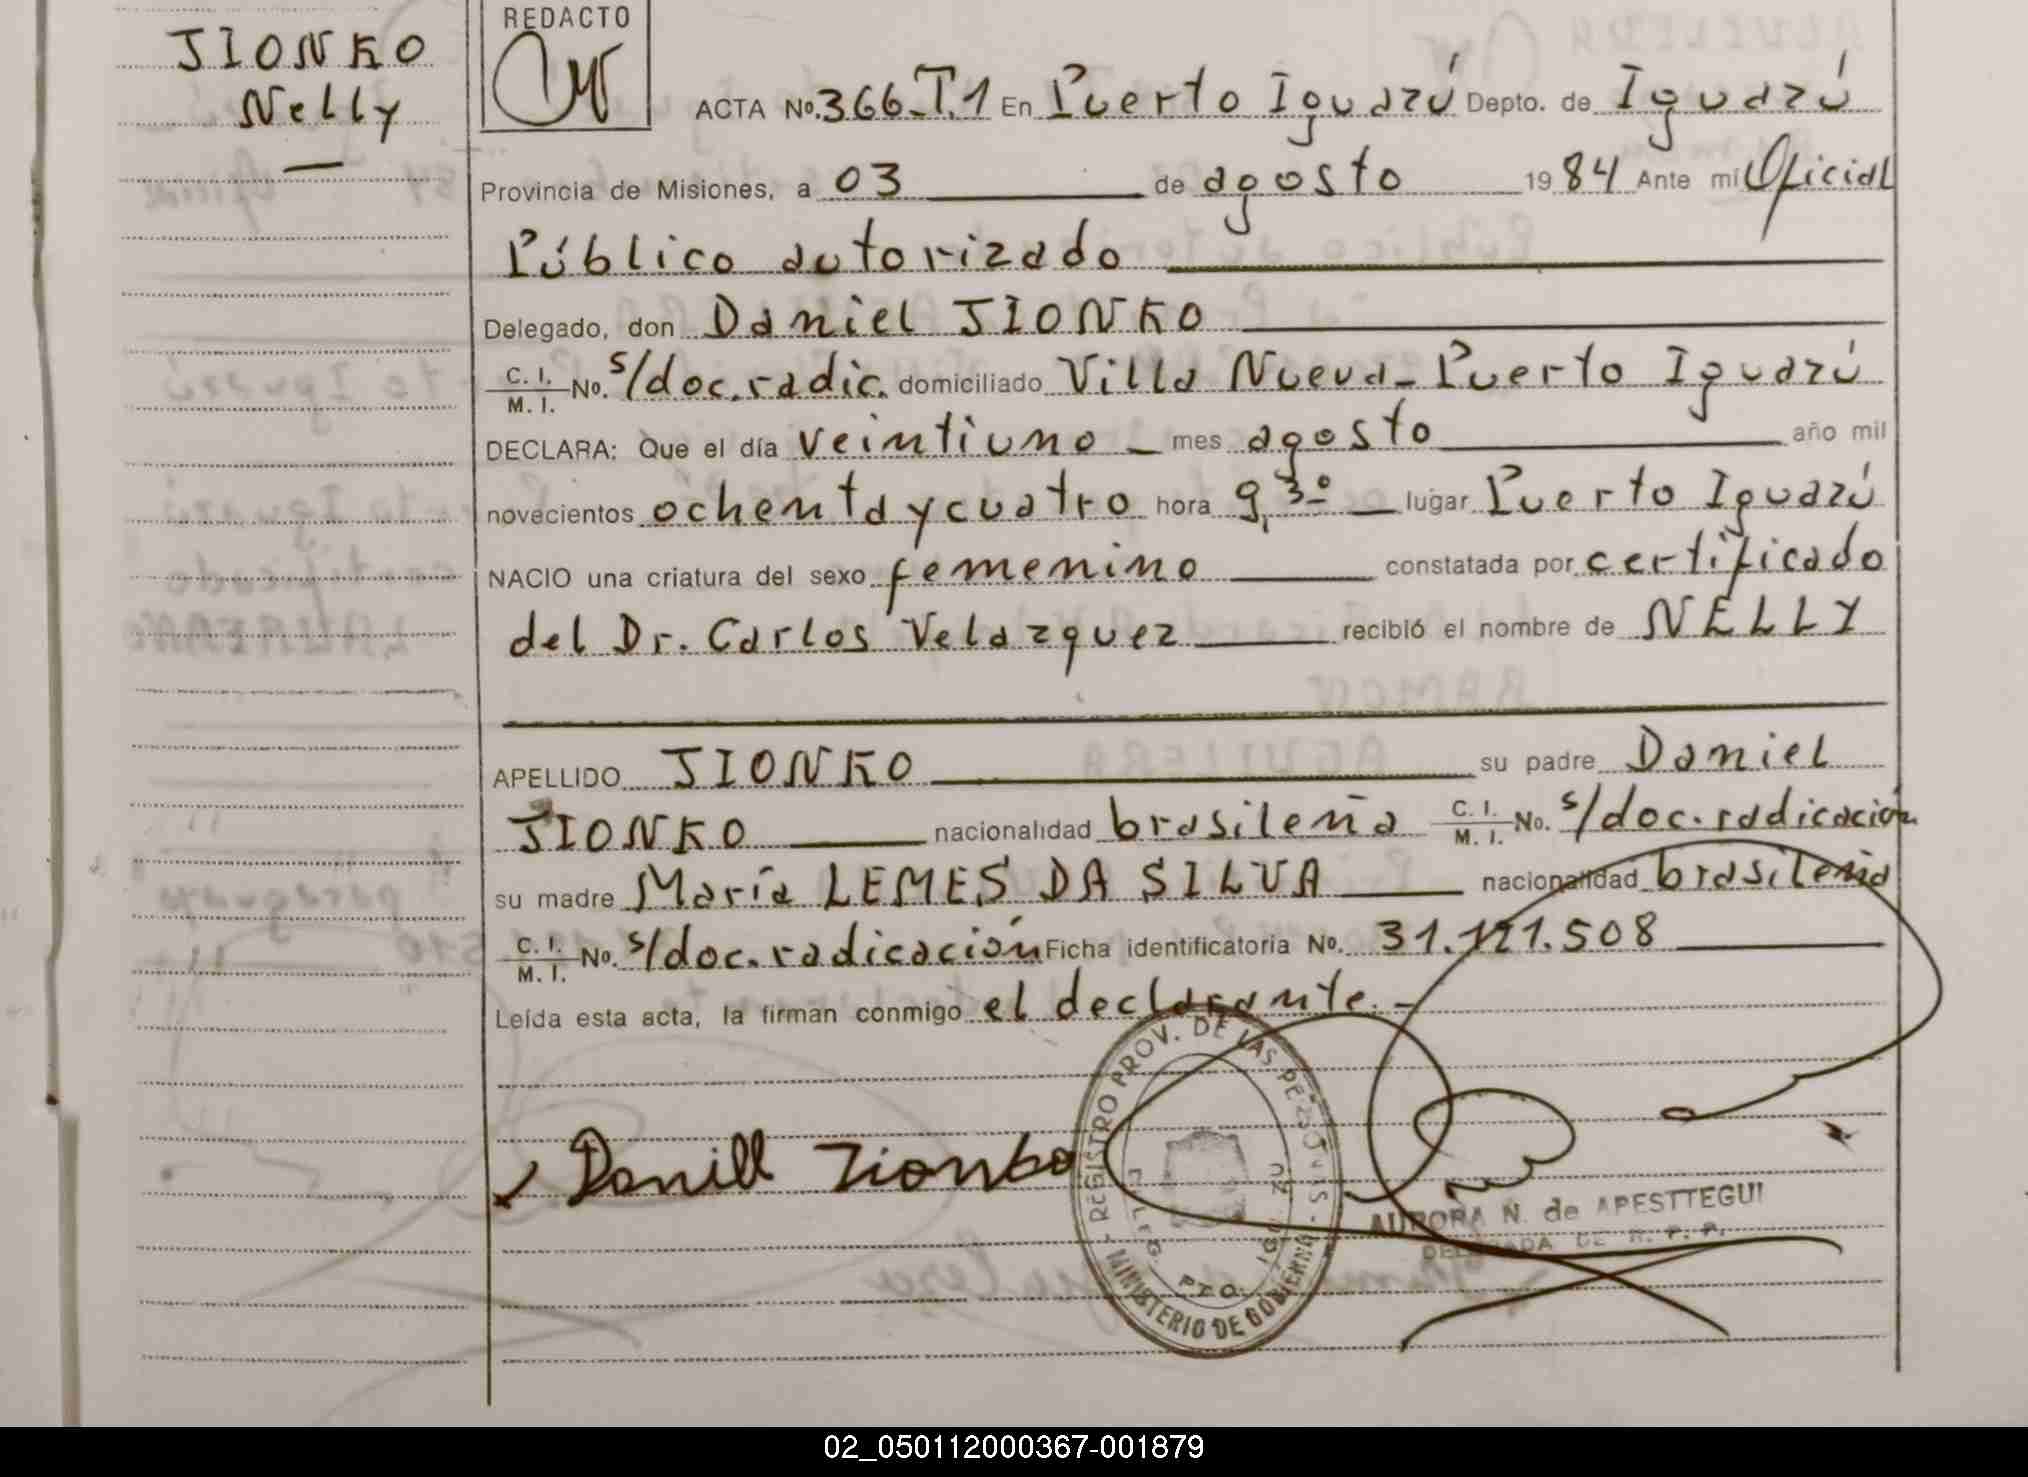 JIONKO
Nelly
REDACTO
ACTA No. 366_T.1 En Puerto Iguazú Depto. de Iguazú
Provincia de Misiones, a 03 de agosto 1984 Ante mi Oficial
Público autorizado
Delegado, don Daniel JIONKO
C. I. / M. I. No. s/doc.radic. domiciliado Villa Nueva_ Puerto Iguazú
DECLARA: Que el día veintiuno _ mes agosto año mil
novecientos ochenta y cuatro hora 9,30 lugar Puerto Iguazú
NACIO una criatura del sexo femenino constatada por certificado
del Dr. Carlos Velazquez recibió el nombre de NELLY
APELLIDO JIONKO su padre Daniel
JIONKO nacionalidad brasileña C. I. / M. I. No. s/doc.radicación
su madre María LEMES DA SILVA nacionalidad brasileña
C. I. / M. I. No. s/doc.radicación Ficha identificatoria No. 31.121.508
Leída esta acta, la firman conmigo el declarante._
Danill Jionko
REGISTRO PROV. DE LAS PERSONAS - MINISTERIO DE GOBIERNO -
DELEG. PTO. IGUAZU
AURORA N. de APESTTEGUI
DELEGADA DE R. P. P.
02_050112000367-001879